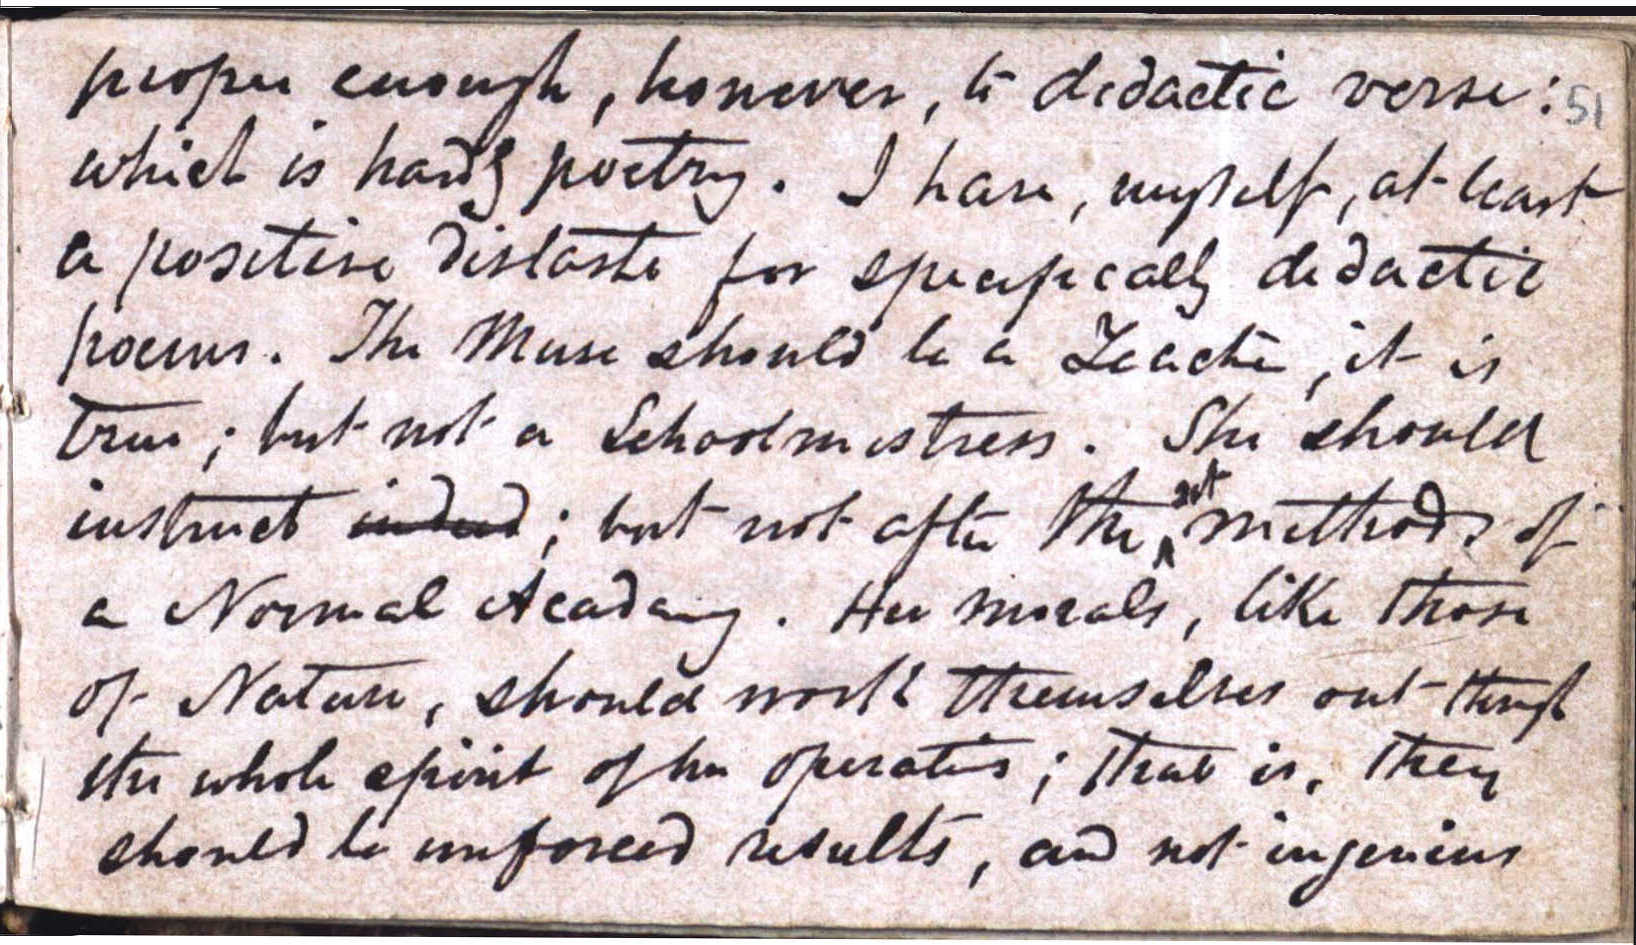 proper enough, however, to didactic verse: 51
which is hardly poetry. I have, myself, at least
a positive distaste for specifically didactic
poems. The Muse should be a Teacher, it is
true; but not a Schoolmistress. She should
instruct indeed; but not after the set methods of
a Normal Academy. Her morals, like those
of Nature, should work themselves out through
the whole spirit of her operations; that is, they
should be unforced results, and not ingenious